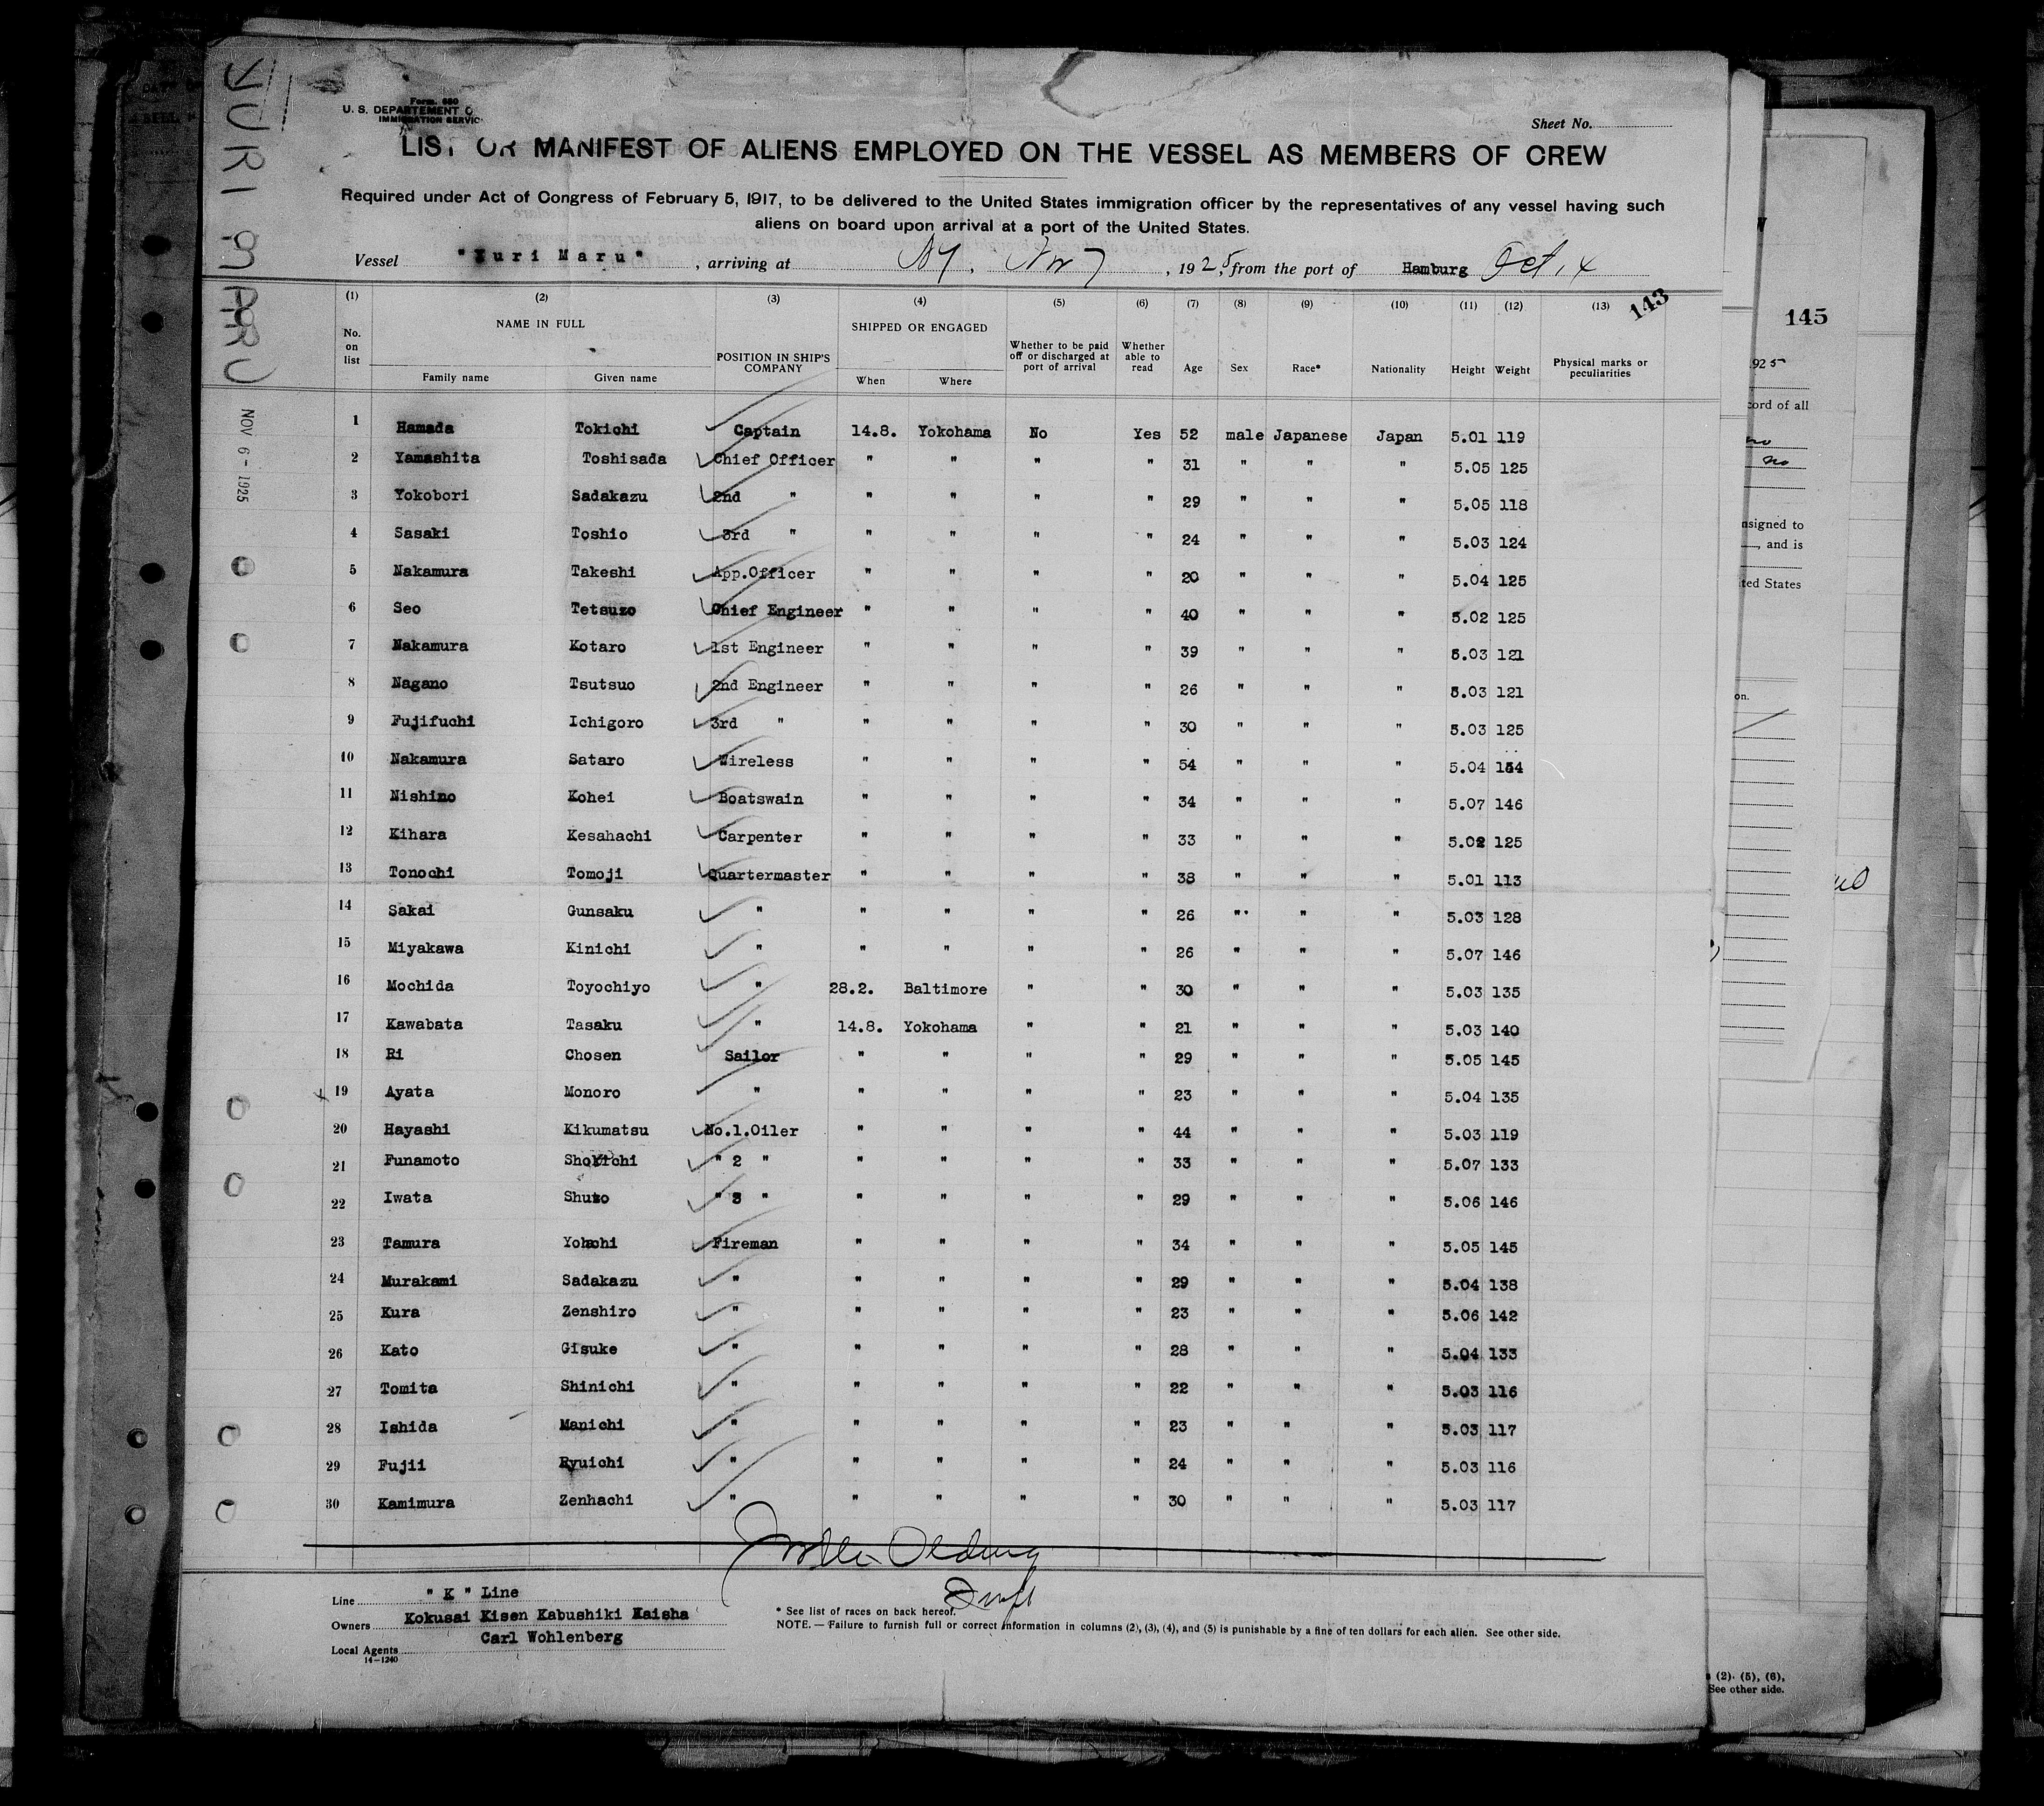 YURI MARU
NOV 6 - 1925
Form 680
U. S. DEPARTEMENT O
IMMIGRATION SERVIC
Sheet No.
LIST OR MANIFEST OF ALIENS EMPLOYED ON THE VESSEL AS MEMBERS OF CREW
Required under Act of Congress of February 5, 1917, to be delivered to the United States immigration officer by the representatives of any vessel having such
aliens on board upon arrival at a port of the United States.
Vessel "Yuri Maru", arriving at NY. Nov 7, 1925, from the port of Hamburg Oct. 14
143
(1) (2) (3) (4) (5) (6) (7) (8) (9) (10) (11) (12) (13)
No. on list NAME IN FULL Family name Given name POSITION IN SHIP'S COMPANY SHIPPED OR ENGAGED When Where Whether to be paid off or discharged at port of arrival Whether able to read Age Sex Race* Nationality Height Weight Physical marks or peculiarities
1 Hamada Tokichi Captain 14.8. Yokohama No Yes 52 male Japanese Japan 5.01 119
2 Yamashita Toshisada Chief Officer " " " " 31 " " " 5.05 125
3 Yokobori Sadakazu 2nd " " " " " 29 " " " 5.05 118
4 Sasaki Toshio 3rd " " " " " 24 " " " 5.03 124
5 Nakamura Takeshi App.Officer " " " " 20 " " " 5.04 125
6 Seo Tetsuzo Chief Engineer " " " " 40 " " " 5.02 125
7 Nakamura Kotaro 1st Engineer " " " " 39 " " " 5.03 121
8 Nagano Tsutsuo 2nd Engineer " " " " 26 " " " 5.03 121
9 Fujifuchi Ichigoro 3rd " " " " " 30 " " " 5.03 125
10 Nakamura Sataro Wireless " " " " 54 " " " 5.04
11 Nishino Kohei Boatswain " " " " 34 " " " 5.07 146
12 Kihara Kesahachi Carpenter " " " " 33 " " " 5.02 125
13 Tonochi Tomoji Quartermaster " " " " 38 " " " 5.01 113
14 Sakai Gunsaku " " " " " 26 " " " 5.03 128
15 Miyakawa Kinichi " " " " " 26 " " " 5.07 146
16 Mochida Toyochiyo " 28.2. Baltimore " " 30 " " " 5.03 135
17 Kawabata Tasaku " 14.8. Yokohama " " 21 " " " 5.03 140
18 Ri Chosen Sailor " " " " 29 " " " 5.05 145
19 Ayata Monoro " " " " " 23 " " " 5.04 135
20 Hayashi Kikumatsu No.1.Oiler " " " " 44 " " " 5.03 119
21 Funamoto " 2 " " " " " 33 " " " 5.07 133
22 Iwata Shuzo " 3 " " " " " 29 " " " 5.06 146
23 Tamura Fireman " " " " 34 " " " 5.05 145
24 Murakami Sadakazu " " " " " 29 " " " 5.04 138
25 Kura Zenshiro " " " " " 23 " " " 5.06 142
26 Kato Gisuke " " " " " 28 " " " 5.04 133
27 Tomita Shinichi " " " " " 22 " " " 5.03 116
28 Ishida Manichi " " " " " 23 " " " 5.03 117
29 Fujii Ryuichi " " " " " 24 " " " 5.03 116
30 Kamimura Zenhachi " " " " " 30 " " " 5.03 117
Line "K" Line
Owners Kokusai Kisen Kabushiki Kaisha
Local Agents Carl Wohlenberg
14-1240
* See list of races on back hereof.
NOTE. — Failure to furnish full or correct information in columns (2), (3), (4), and (5) is punishable by a fine of ten dollars for each alien. See other side.
145
925
cord of all
no
no
nsigned to
, and is
ted States
on.
(2). (5), (6),
See other side.